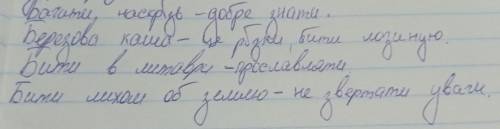 Багати, насфузь - добре знати.
Березова каша - це різки, бити лозиною.
Бити в литаври - прославляти.
Бити лихом об землю - не звертати уваги.